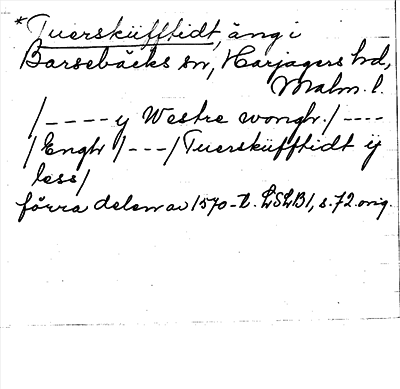 *Tuersküfftidt, äng i
Barsebäcks sn, Harjagers hd,
Malm. l.
/ - - - - y Westre wongh. / - - - -
/ Engh / - - - / Tuersküfftidt ij
less /
förra delen av 1570-t. LSLB1, s. 72 orig.